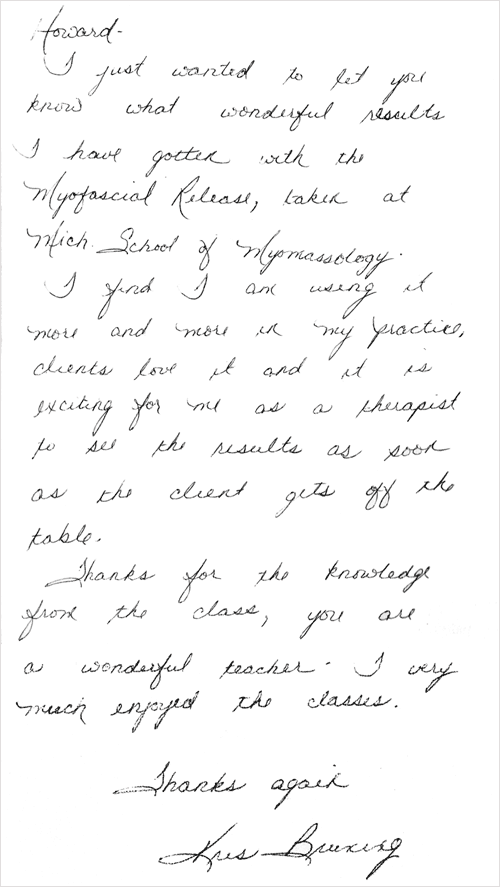 Howard-
I just wanted to let you
know what wonderful results
I have gotten with the
Myofascial Release, taken at
Mich. School of Myomassology.
I find I am using it
more and more in my practice,
clients love it and it is
exciting for me as a therapist
to see the results as soon
as the client gets off the
table.
Thanks for the knowledge
from the class, you are
a wonderful teacher. I very
much enjoyed the classes.
Thanks again
Kris